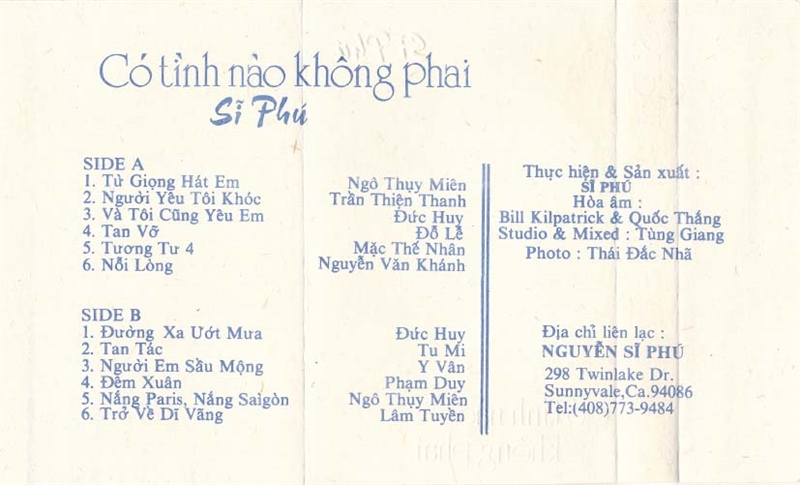 Có tình nào không phai
Sĩ Phú
SIDE A
1. Từ Giọng Hát Em Ngô Thụy Miên
2. Người Yêu Tôi Khóc Trần Thiện Thanh
3. Và Tôi Cũng Yêu Em Đức Huy
4. Tan Vỡ Đỗ Lễ
5. Tương Tư 4 Mặc Thế Nhân
6. Nỗi Lòng Nguyễn Văn Khánh
SIDE B
1. Đường Xa Ướt Mưa Đức Huy
2. Tan Tác Tu Mi
3. Người Em Sầu Mộng Y Vân
4. Đêm Xuân Phạm Duy
5. Nắng Paris, Nắng Saigòn Ngô Thụy Miên
6. Trở Về Dĩ Vãng Lâm Tuyền
Thực hiện & Sản xuất :
SĨ PHÚ
Hòa âm :
Bill Kilpatrick & Quốc Thắng
Studio & Mixed : Tùng Giang
Photo : Thái Đắc Nhã
Địa chỉ liên lạc :
NGUYỄN SĨ PHÚ
298 Twinlake Dr.
Sunnyvale,Ca.94086
Tel:(408)773-9484